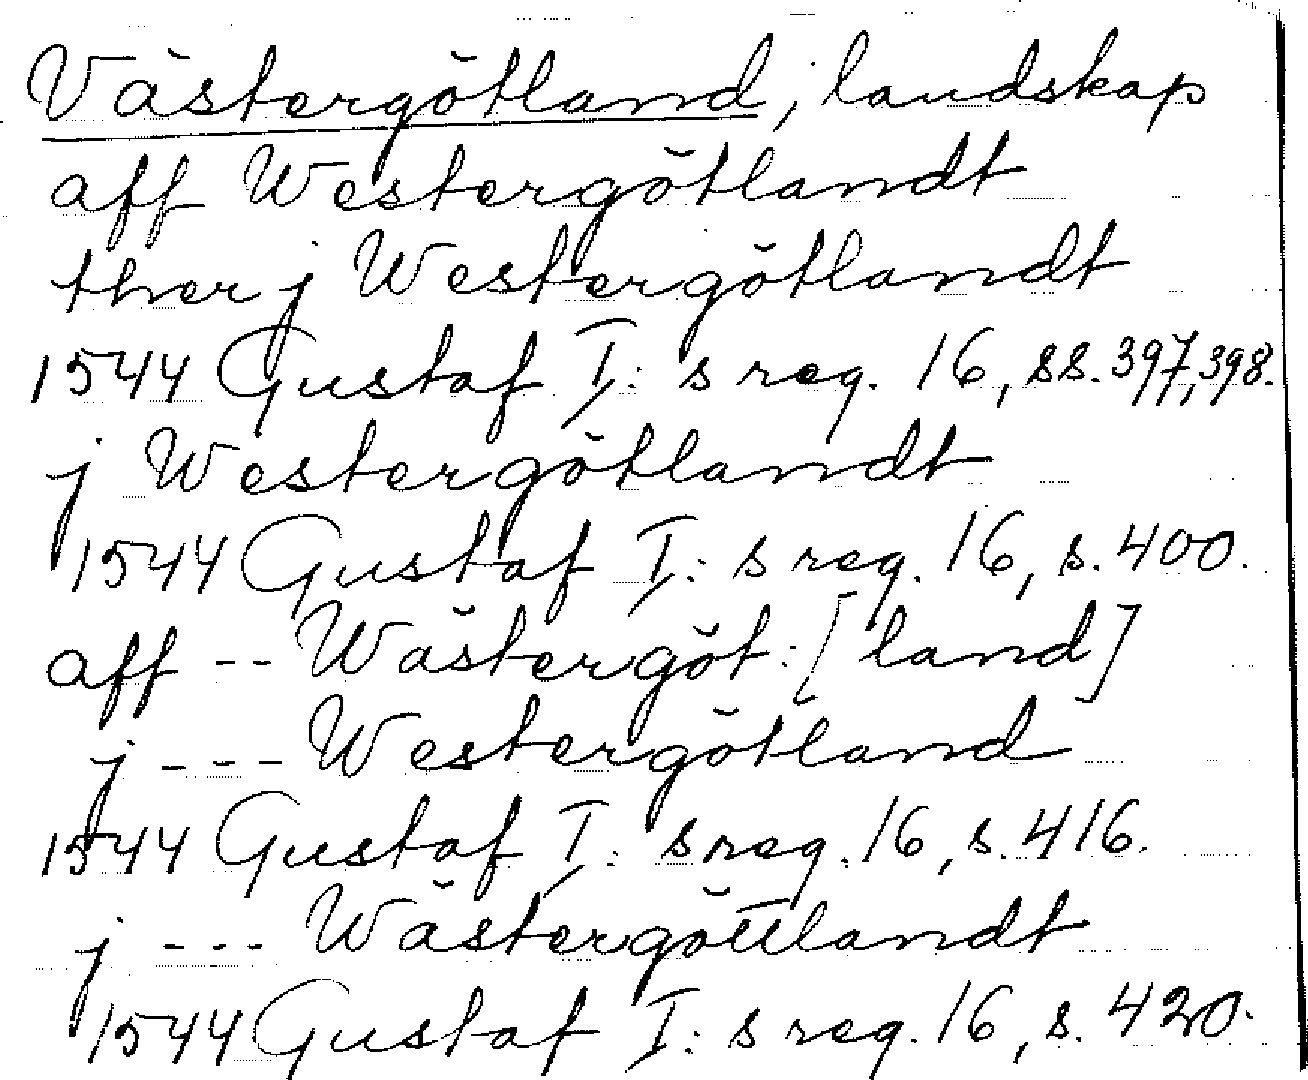 Västergötland, landskap
aff Westergötlandt
ther j Westergötlandt
1544 Gustaf I:s reg. 16, ss. 397, 398.
j Westergötlandt
1544 Gustaf I:s reg. 16, s. 400.
aff -- Wästergöt:[land]
j --- Westergötland
1544 Gustaf I:s reg. 16, s. 416.
j --- Wästergöttlandt
1544 Gustaf I:s reg. 16, s. 420.